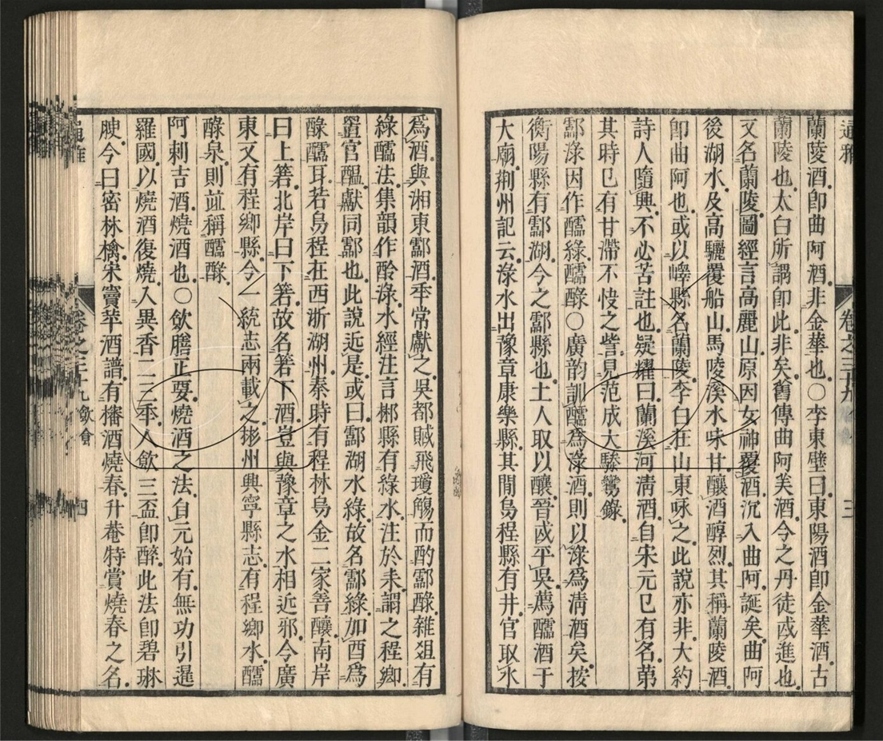 通雅
卷之三十九
三
蘭陵酒即曲阿酒非金華也○李東壁曰東陽酒即金華酒古
蘭陵也太白所謂即此非矣舊傳曲阿美酒今之丹徒或進也
又名蘭陵圖經言高麗山原因女神覆酒沉入曲阿誕矣曲阿
後湖水及高驪覆船山馬陵溪水味甘釀酒醇烈其稱蘭陵酒
即曲阿也或以嶧縣名蘭陵李白在山東咏之此說亦非大約
詩人隨興不必苦註也疑耀曰蘭溪河清酒自宋元巳有名第
其時巳有甘滯不快之訾見范成大驂鸞錄
酃淥因作醽綠醽醁○廣韵訓醽爲淥酒則以淥爲清酒矣按
衡陽縣有酃湖今之酃縣也土人取以釀晉武平吳薦醽酒于
大廟荆州記云淥水出豫章康樂縣其閒烏程縣有井官取水
爲酒與湘東酃酒季常獻之吳都賦飛瓊觴而酌酃醁雜俎有
綠醽法集韻作醶淥水經注言郴縣有綠水注於耒謂之程卿
置官醖獻同酃也此說近是或曰酃湖水綠故名酃綠加酉爲
醁醽耳若烏程在西浙湖州秦時有程林烏金二家善釀南岸
曰上箬北岸曰下箬故名箬下酒豈與豫章之水相近邪今廣
東又有程鄉縣今一統志兩載之郴州興寧縣志有程鄉水醽
醁泉則竝稱醽醁
阿剌吉酒燒酒也○飮膳正要燒酒之法自元始有無功引暹
羅國以燒酒復燒入異香二三季人飮三盃即醉此法即碧琳
腴今曰密林檎宋竇苹酒譜有榰酒燒春升菴特賞燒春之名
通雅
卷之三十九
飮食
四